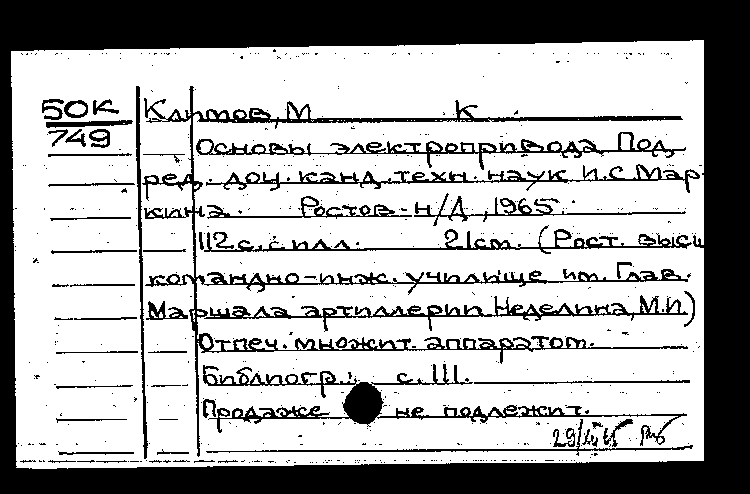 50К Климов, М К.
749
Основы электропривода. Под
ред. доц. канд. техн. наук И.С. Мар-
кина. Ростов-н/Д, 1965.
112 с. с илл. 21 cm. (Рост. высш
командно-инж. училище им. Глав.
Маршала артиллерии Неделина, М.И.)
Отпеч. множит. аппаратом.
Библиогр.: с. 111.
Продаже не подлежит.